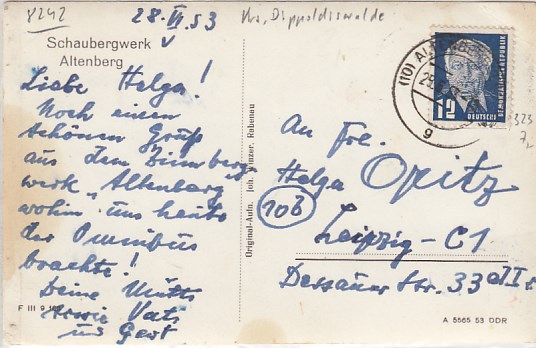 8242
28.VI.53
Krs. Dippoldiswalde
Schaubergwerk
Altenberg
Liebe Helga!
Noch einen
schönen Gruß
aus dem Zinnberg
werk „Altenberg"
wohin uns heute
der Omnibus
brachte!
Deine Mutti
sowie Vati
und Gert
F III 9
Original-Aufn. Joh. Rabenau
(10) ALTENBERG
g
12
DEUTSCHE
DEMOKRATISCHE REPUBLIK
323
An Frl.
Helga Opitz
10b
Leipzig-C1
Dessauer Str. 33
A 5565 53 DDR